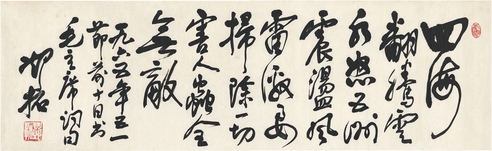 四海
翻腾云
水怒五洲
震荡风
雷激要
扫除一切
害人虫全
无敌
一九六五年五一
节前十日书
毛主席词句
邓拓